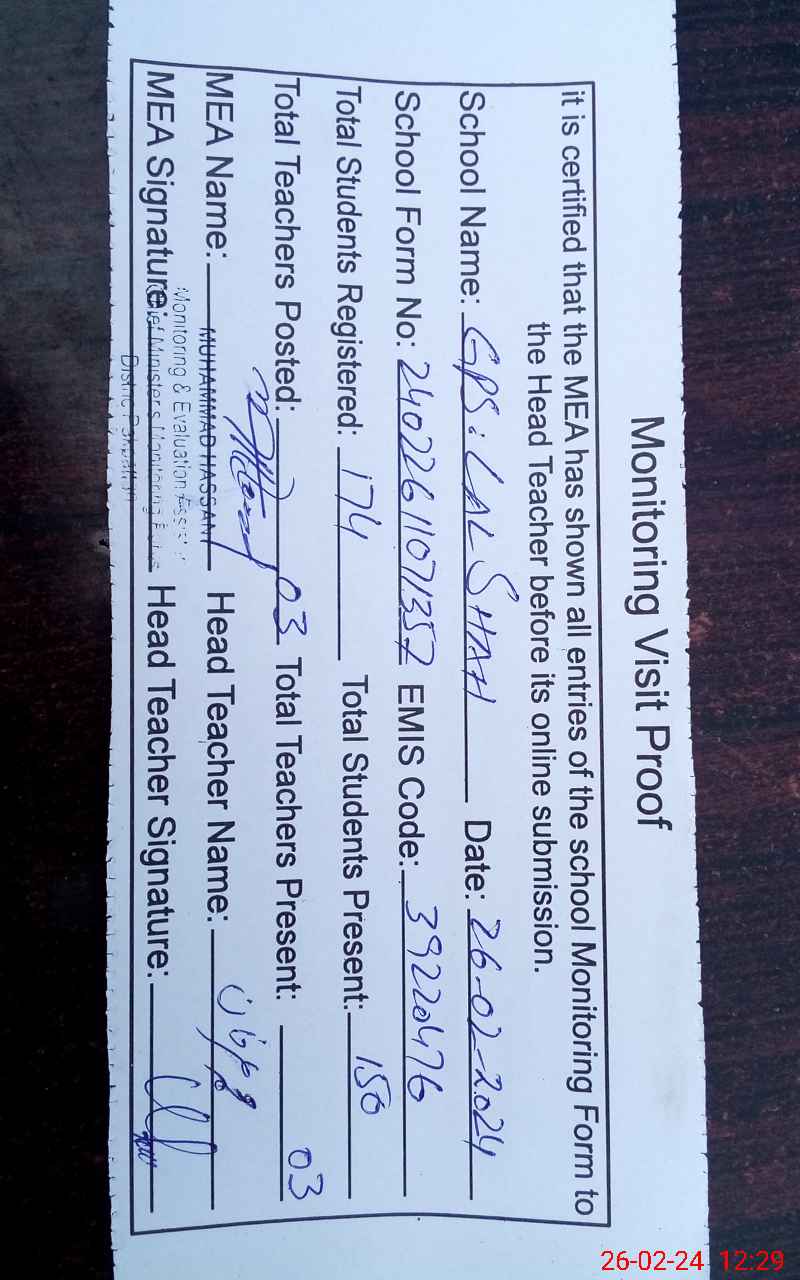 Monitoring Visit Proof
it is certified that the MEA has shown all entries of the school Monitoring Form to
the Head Teacher before its online submission.
School Name: GPS: LAL SHAH Date: 26-02-2024
School Form No: 24022611071357 EMIS Code: 39220476
Total Students Registered: 174 Total Students Present: 150
Total Teachers Posted: 03 Total Teachers Present: 03
MEA Name: MUHAMMAD HASSAN Head Teacher Name:
Monitoring & Evaluation Assistant
MEA Signature: Head Teacher Signature:
Chief Minister's Monitoring Force
District Pakpattan
26-02-24 12:29